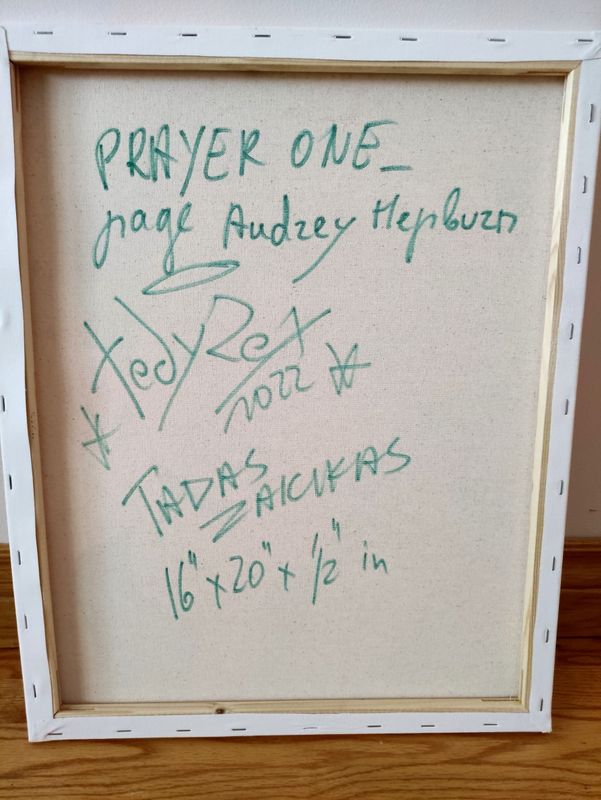 PRAYER ONE_
page Audrey Hepburn
XedyRex
2022
TADAS
ZAICIKAS
16" x 20" x 1/2" in